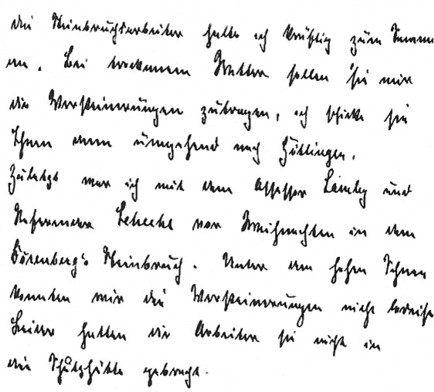 die Steinbrucharbeiter halte ich kräftig zum Sammeln
an. Bei trockenem Wetter sollen sie mir
die Versteinerungen zutragen, ich schicke sie
Ihnen dann umgehend nach Göttingen.
Zuletzt war ich mit dem Assessor und
Referendar vor Weihnachten in dem
Steinbruch. Unter dem hohen Schnee
konnten wir die Versteinerungen nicht
Leider hatten die Arbeiter sie nicht in
die Schutzhütte gebracht.